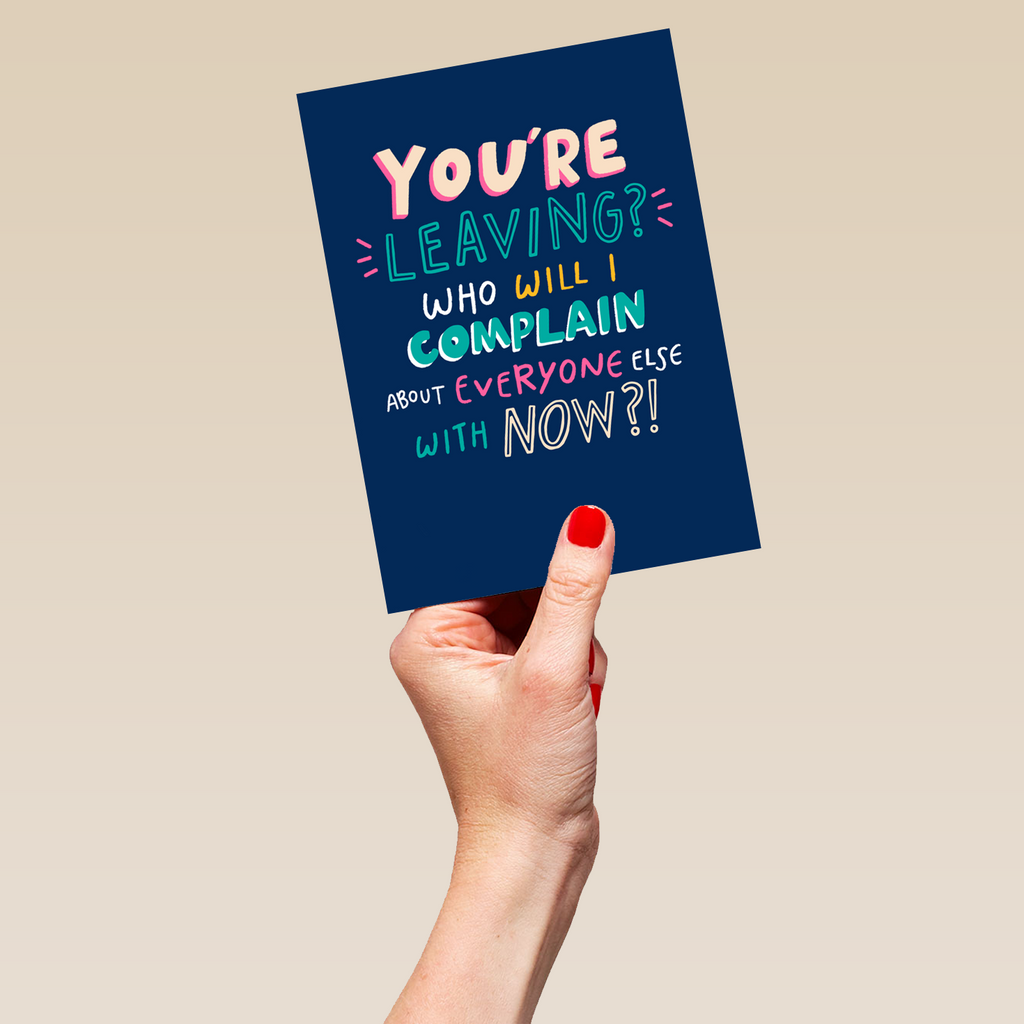 YOU'RE
LEAVING?
WHO WILL I
COMPLAIN
ABOUT EVERYONE ELSE
WITH NOW?!